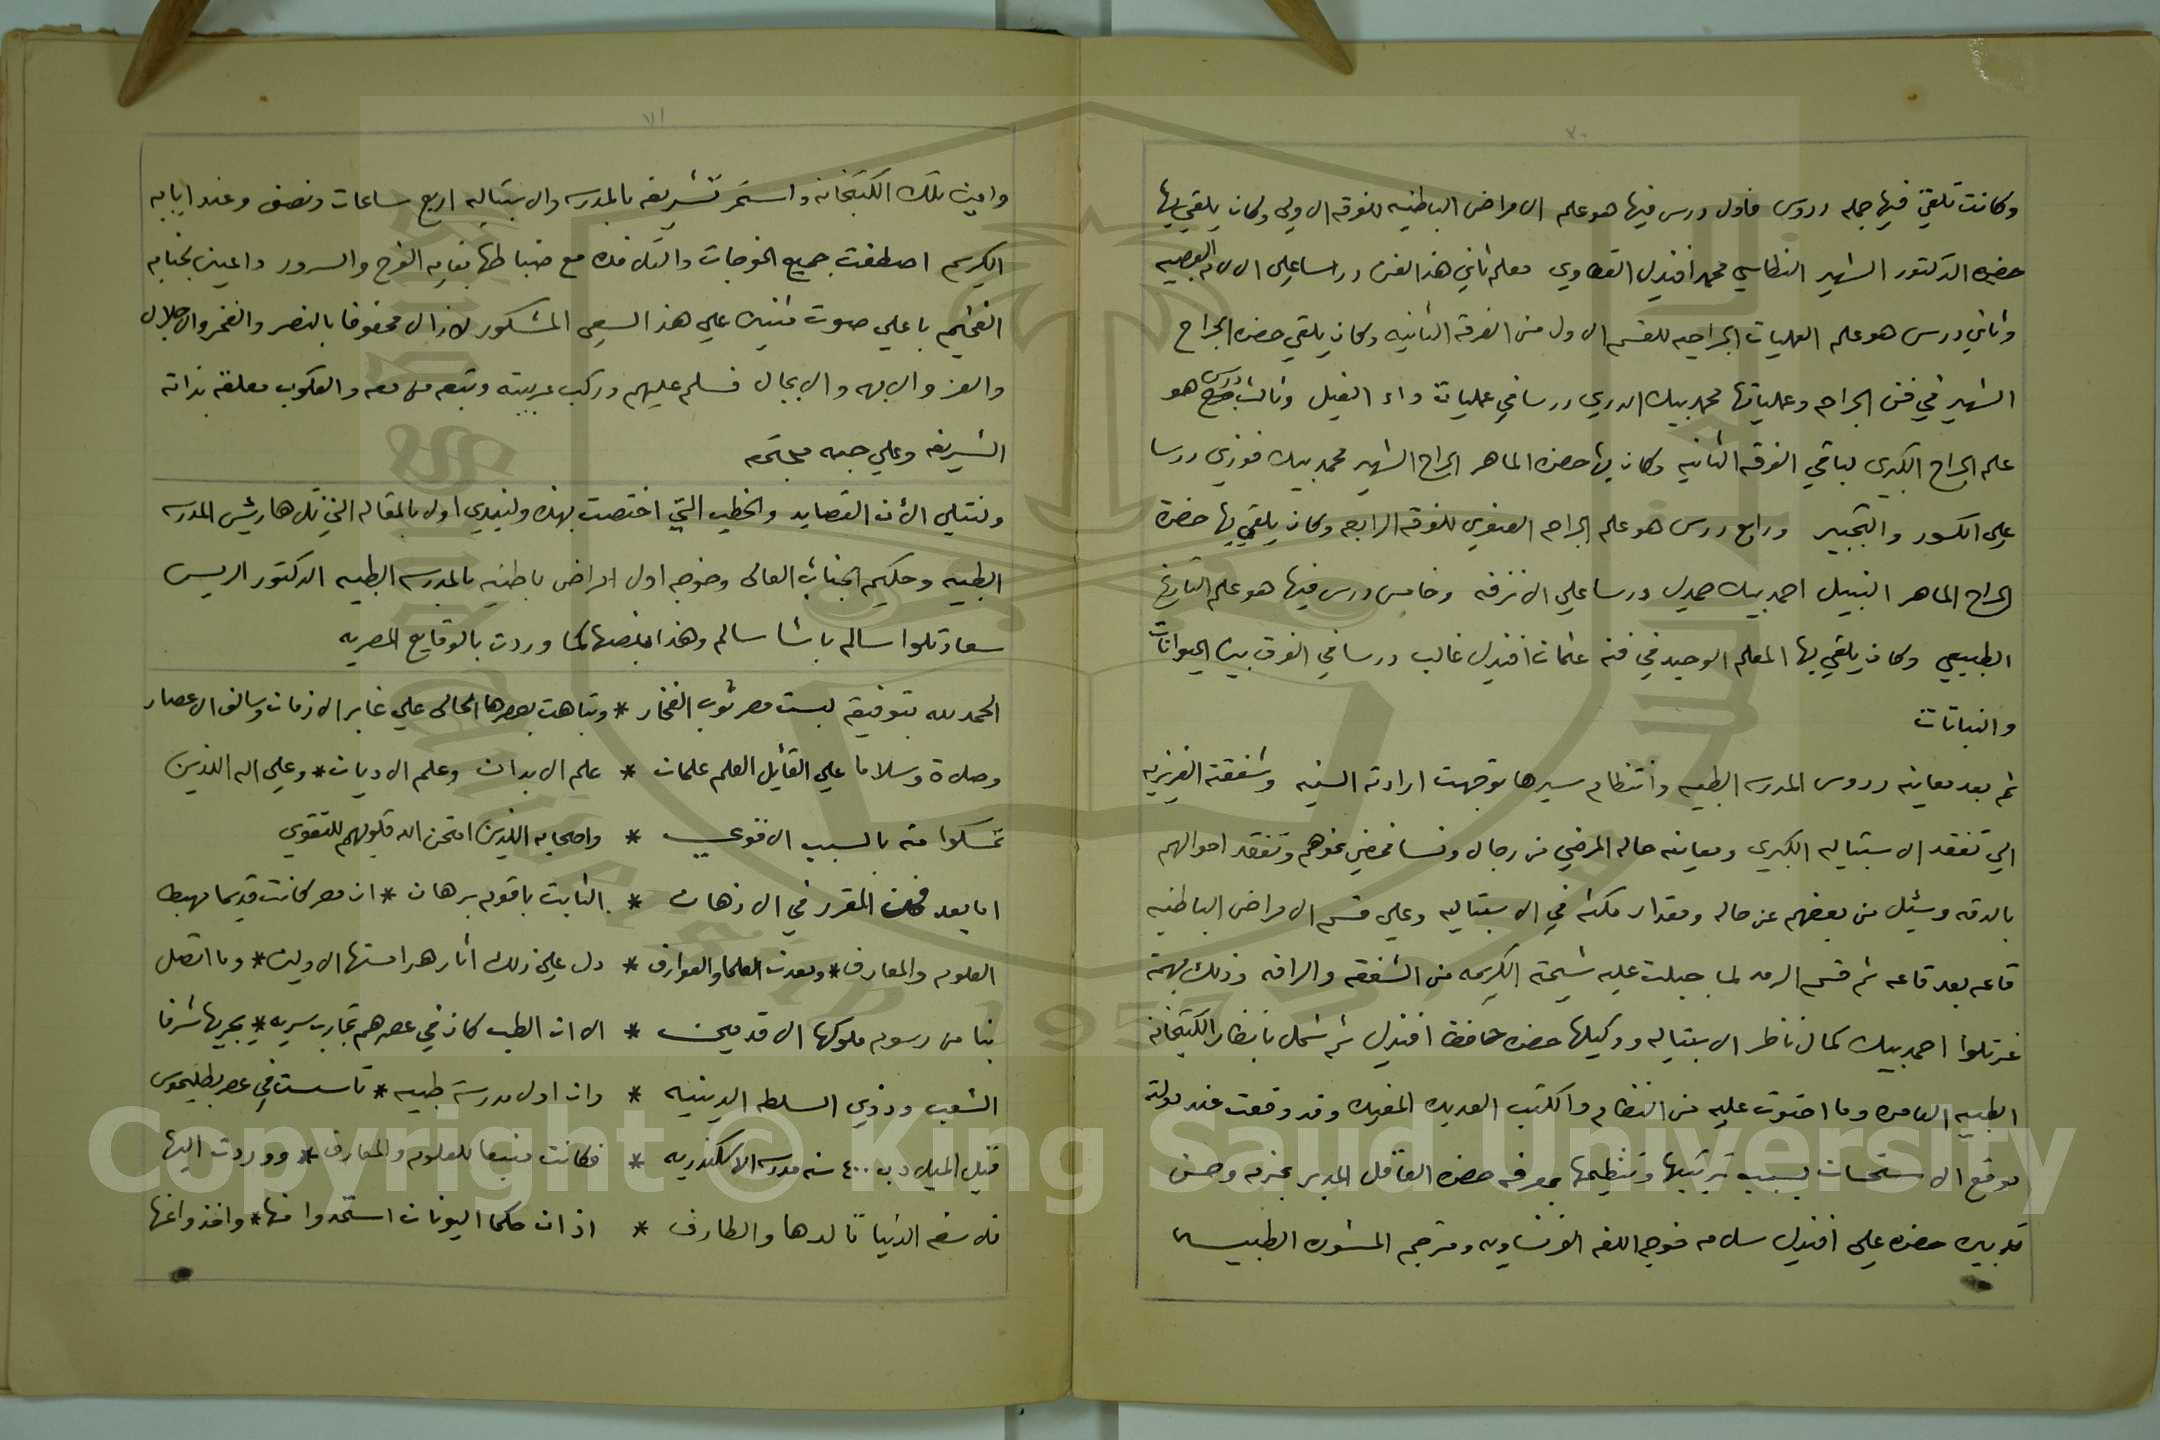 ٧٠
وكانت تلقي فيها جمله دروس فاول درس فيها هو علم الامراض الباطنيه للفرقه الاولي وكان يلقي بها
حضرة الدكتور الشهير النطاسي محمد افندي القطاوي معلم ثاني هذا الفن درسا علي الالام العصبيه
وثاني درس هو علم العمليات الجراحيه للقسم الاول من الفرقه الثانيه وكان يلقي حضره الجراح
الشهير في فن الجراحه وعملياتها محمد بيك الدري درسا في عمليات داء الفيل وثالث درس هو
علم الجراح الكبري لباقي الفرقه الثانيه وكان بها حضره الماهر الجراح الشهير محمد بيك فوزي درسا
علي الكسور والتجبير ورابع درس هو علم الجراحه الصغري للفرقه الرابعه وكان يلقي بها حضرة
الجراح الماهر النبيل احمد بيك حمدي درسا علي الانزفه وخامس درس فيها هو علم التاريخ
الطبيعي وكان يلقي بها المعلم الوحيد في فنه عثمان افندي غالب درسا في الفرق بين الحيوانات
والنباتات
ثم بعد معاينه دروس المدرسه الطبيه وانتظام سيرها توجهت ارادته السنيه وشفقته الغزيزيه
الي تفقد الاسبتاليه الكبري ومعاينه حاله المرضي من رجال ونسا فمضي نحوهم وتفقد احوالهم
بالدقه وسئل من بعضهم عن حاله ومقدار مكثه في الاسبتاليه وعلي قسم الامراض الباطنيه
قاعه بعد قاعه ثم قسم الرمد لما جبلت عليه شيمته الكريمه من الشفقه والرافه وذلك بهمة
عزتلوا احمد بيك كمال ناظر الاسبتاليه ووكيلها حضره حافظ افندي ثم شمل بانظار الكتبخانه
الطبيه العامره وما احتوت عليه من النظام والكتب العديده المفيده وقد وقعت عند دولته
موقع الاستحسان بسبب ترتيبها وتنظيمها بمعرفه حضره العاقل المدبر بحزمه وحسن
تدبيره حضره علي افندي سلامه خوجه اللغه الفرنساويه ومترجم المشوره الطبيه
٧١
وامين تلك الكتبخانه واستمر تشريفه بالمدرسه والاسبتاليه اربع ساعات ونصف وعند ايابه
الكريم اصطفت جميع الخوجات والتلامذه مع ضباطها بغايه الفرح والسرور داعين لجنابه
الفخيم باعلي صوت مثنيه علي هذا السعي المشكور لازال محفوفا بالنصر والفخر والاجلال
والعز والابهه والاجمال فسلم عليهم وركب عربيته وتبعه من معه والقلوب معلقه بذاته
الشريفه وعلي حبه مجتمعه
ولنتلي الأن القصايد والخطب التي اختصت بهذه ولنبدي اولا بالمقاله التي تلاها رئيس المدرسه
الطبيه وحكيم الجناب العالي وخوجه اول امراض باطنيه بالمدرسه الطبيه الدكتور الريس
سعادتلوا سالم باشا سالم وهذا بنصها كما وردت بالوقايع المصريه
الحمد لله بتوفيقه لبست مصر ثوب الفخار * وتباهت بعصرها الحالي علي غابر الازمان وسالف الاعصار
وصلاة وسلاما علي القائل العلم علمان * علم الابدان وعلم الاديان * وعلي اله اللذين
تمسكوا منه بالسبب الاقوي * واصحابه اللذين امتحن الله قلوبهم للتقوي
اما بعد فمن المقرر في الاذهان * الثابت باقوم برهان * ان مصر كانت قديما مهبط
العلوم والمعارف * ومعدن العلما والعوارف * دل علي ذلك اثار هرامستها الاولين * وما اتصل
بنا من رسوم ملوكها الاقدمين * الا ان الطب كان في عصرهم تجارب سريه * يجريها شرفا
الشعب وذوي السلطه الدينيه * وان اول مدرسة طبيه * تاسست في عصر بطليموس
قبل الميلاد ب ٤٠٠ سنه مدرسه الاسكندريه * فكانت منبعا للعلوم والمعارف * ووردت اليها
فلاسفه الدنيا تالدها والطارف * اذ ان حكما اليونان استمدوا منها * واخذوا عنها
Copyright © King Saud University
King Saud University
1957